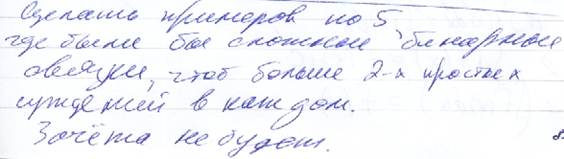 Сделать примеров по 5
где были бы сложные бинарные
связки, чтоб больше 2-х простых
суждений в каждом.
Зачёта не будет.
8